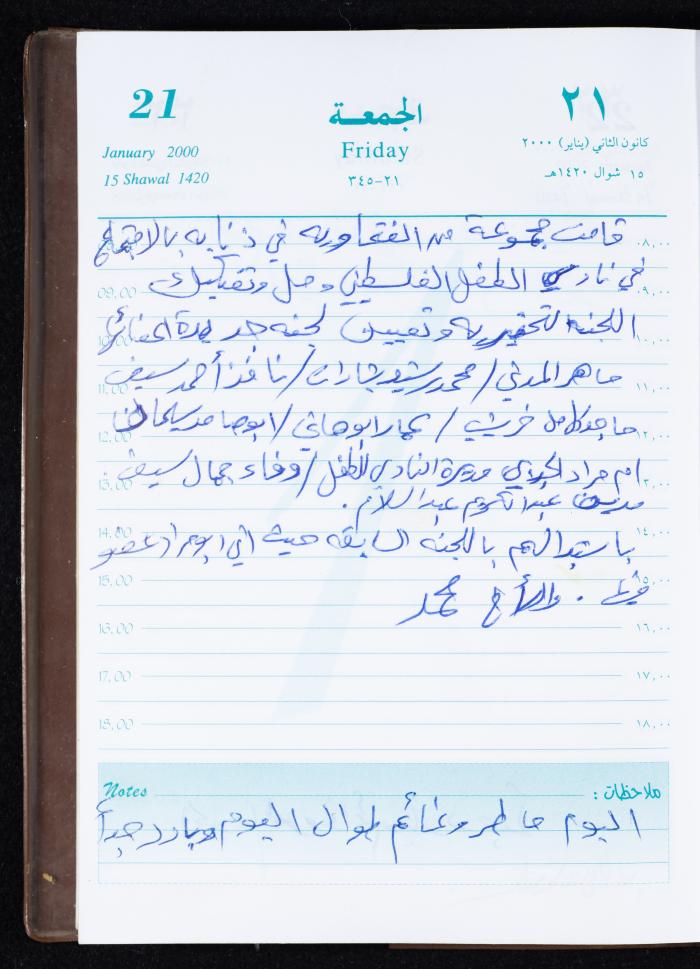 21 الجمعة ٢١
January 2000 Friday كانون الثاني (يناير) ٢٠٠٠
15 Shawal 1420 ٢١-٣٤٥ ١٥ شوال ١٤٢٠هـ
قامت مجموعة من الفتحاويه في ذنابه بالاجتماع ٨,٠٠
09.00 في نادي الطفل الفلسطيني وحل وتفكيك ٩,٠٠
اللجنه التحضيريه وتعيين لجنه جديدة ١٠,٠٠
11.00 ماهر المدني / محمد رشيد بشارات / نافذ أحمد سيف ١١,٠٠
12.00 ماجد كامل خريشه / عمار ابوهاني / ابوحامد سليمان ١٢,٠٠
13.00 ام مراد مديرة النادي للطفل / وفاء جمال سيف. ١٣,٠٠
عبد الكريم عبد السلام.
14.00 باستبدالهم باللجنه السابقه حيث ان ابو مراد عضو ١٤,٠٠
15.00 فيها. والأخ محمد ١٥,٠٠
16.00 ١٦,٠٠
17.00 ١٧,٠٠
18.00 ١٨,٠٠
Notes ملاحظات :
اليوم ماطر وغائم طوال اليوم وبارد جداً